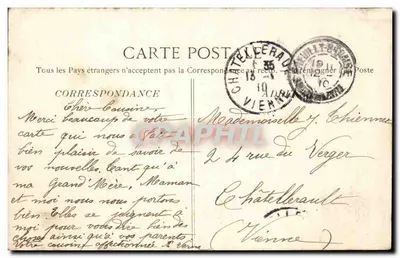 CARTE POSTALE
Tous les Pays étrangers n'acceptent pas la Correspondance au recto
CORRESPONDANCE
CHATELLERAULT
VIENNE
Chère Cousine
Merci beaucoup de votre
carte qui nous a fait
bien plaisir de savoir de
vos nouvelles. Tant qu'à
ma Grand'Mère, Maman
et moi nous nous portons
bien. Elles se joignent à
moi pour vous dire bien des
choses ainsi qu'à vos parents
votre cousine affectionnée
Mademoiselle J Thienne
24 rue du Verger
Châtellerault
(Vienne)